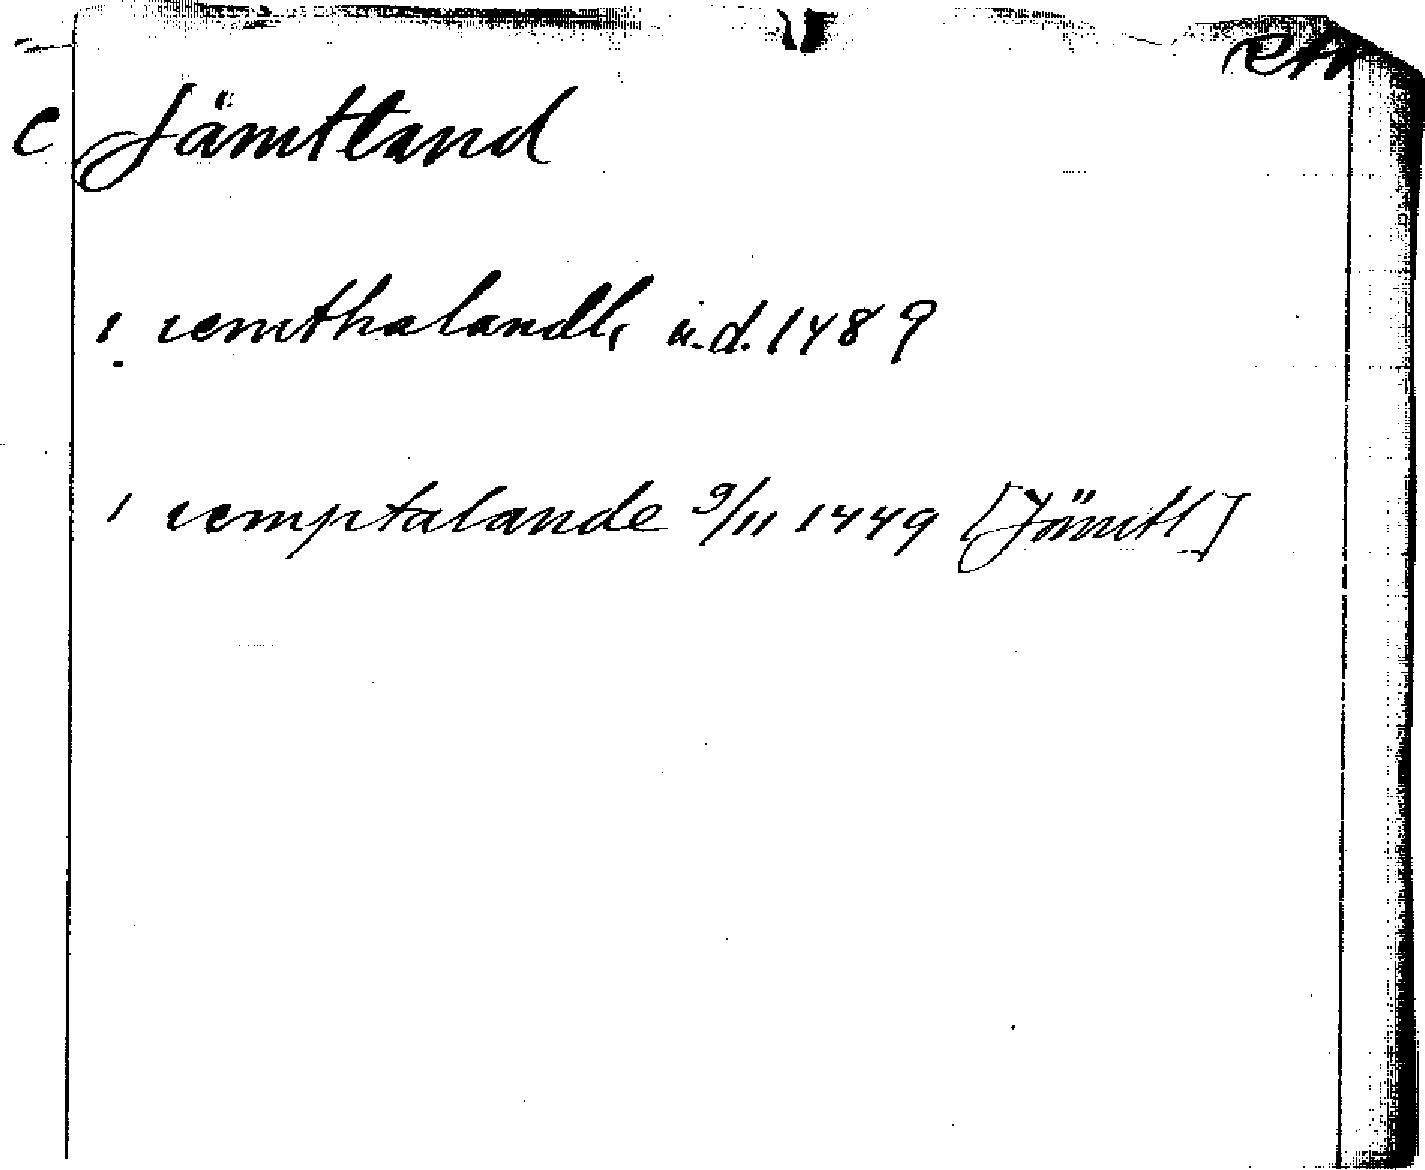 C Jämtland
i iemthalandh u.d. 1489
i iemptalande 9/11 1449 [Jämtl]